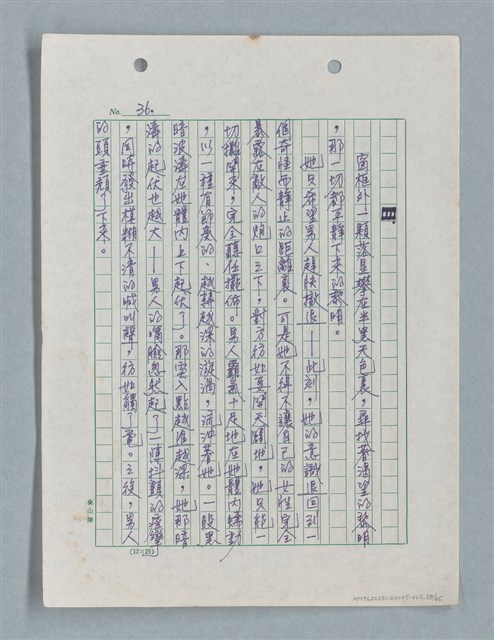 No. 36.
窗框外一顆落星攀在半黑天色裏，尋找著渴望的黎明
，那一切都平靜下來的黎明。
她只希望男人趕快撤退——此刻，她的意識退回到一
個奇怪而靜止的距離裏。可是她不得不讓自己的女性完全
暴露在敵人的炮口之下，對方彷如要開天闢地，她只能一
切攤開來，完全聽任擺佈。男人霸氣十足地在她體內蠕動
，以一種有節奏的、越轉越深的漩渦，流沖著她。一股黑
暗波濤在她體內上下起伏了。那密入點越進越深，她那暗
濤的起伏也越大——男人的嘴臉忽然起了一陣抖顫的痙攣
，同時發出模糊不清的喊叫聲，彷如觸了電。之後，男人
的頭垂頹了下來。
金山牌
(12×25)